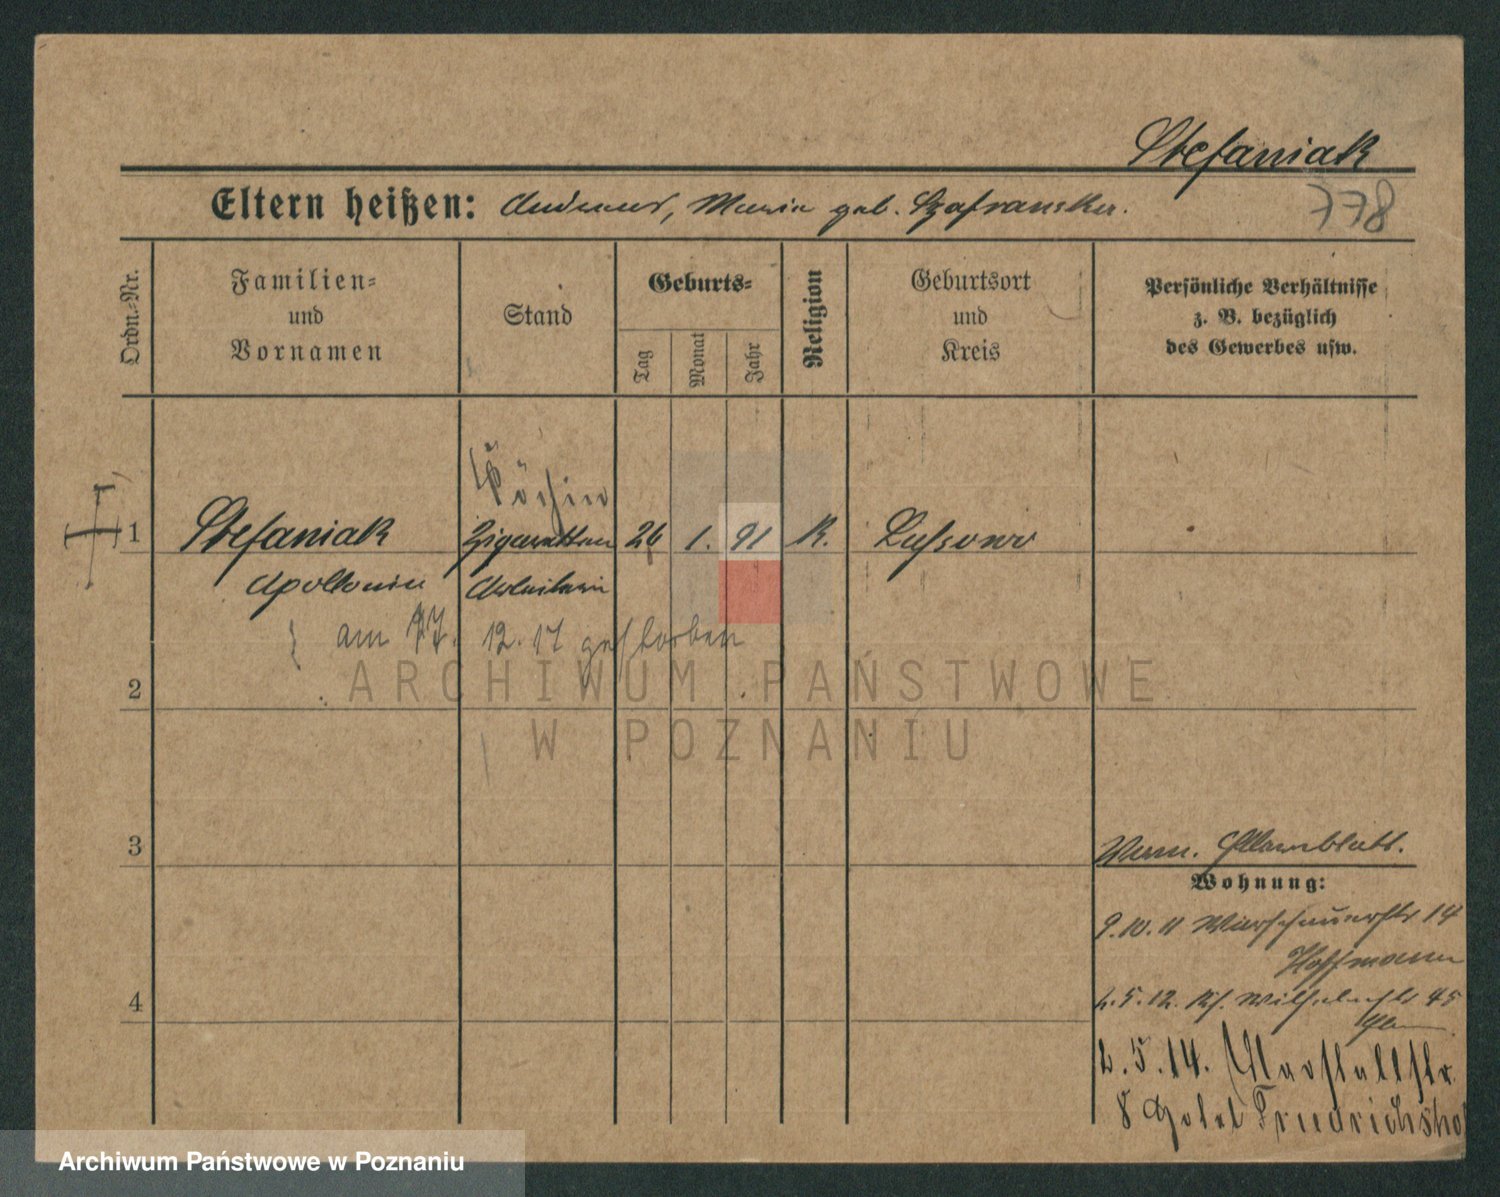 Stefaniak
Eltern heißen: Andreas, Maria geb. Szafranska.
778
Ordn.-Nr.
Familien-
und
Vornamen
Stand
Geburts-
Tag
Monat
Jahr
Religion
Geburtsort
und
Kreis
Persönliche Verhältnisse
z. B. bezüglich
des Gewerbes usw.
Köchin
1 Stefaniak Zigaretten 26 1. 91 K. Lussowo
Apollonia Arbeiterin
am 17. 12. 17 gestorben
2
3
4
Wohnung:
9.10.11 Warschauerstr 14
Hoffmann
2.5.12. Wilhelmstr 45
2.5.14. Marstallstr.
8 Hotel Friedrichshof
ARCHIWUM PAŃSTWOWE
W POZNANIU
Archiwum Państwowe w Poznaniu